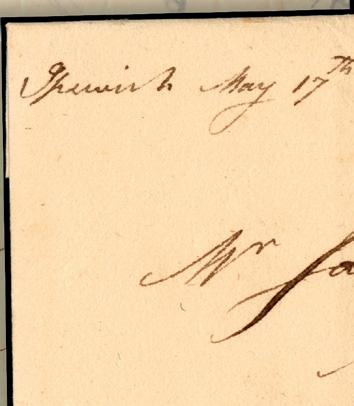 Ipswich May 17th
Mr Ja